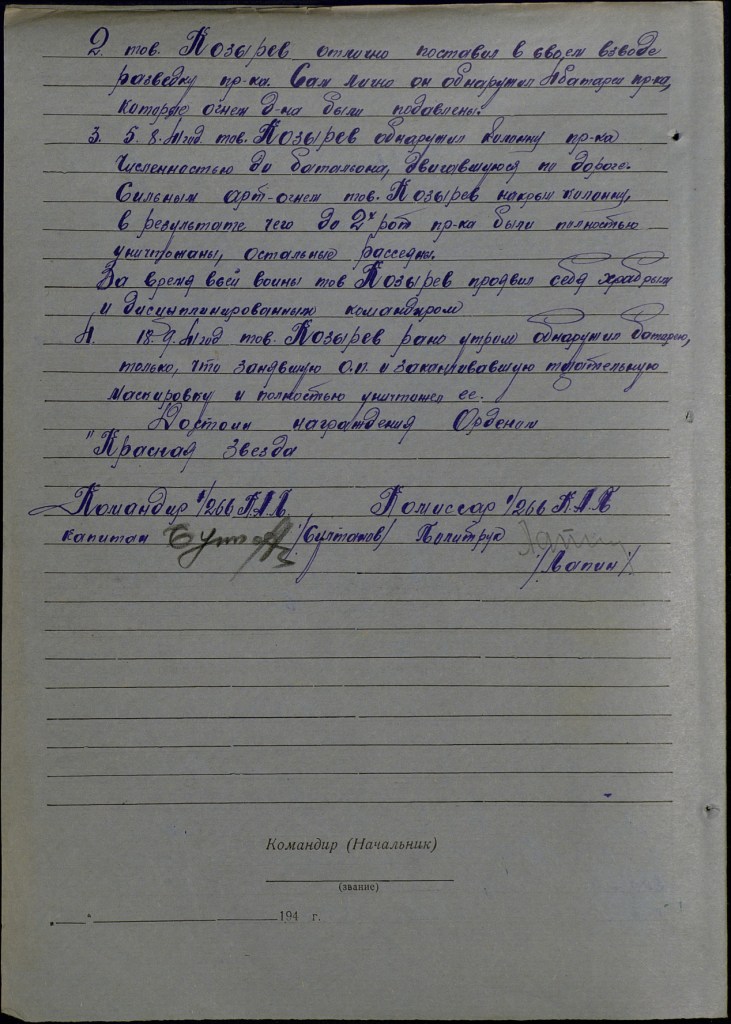 2. тов. Козырев отлично поставил в своем взводе
разведку пр-ка. Сам лично он обнаружил 4 батареи пр-ка,
которые огнем д-на были подавлены.
3. 5.8.41 год. тов. Козырев обнаружил колонну пр-ка
численностью до батальона, двигавшуюся по дороге.
Сильным арт-огнем тов. Козырев накрыл колонну,
в результате чего до 2х рот пр-ка были полностью
уничтожаны, остальные рассеяны.
За время всей войны тов Козырев проявил себя храбрым
и дисцыплинированным командиром
4. 18.9.41 год тов. Козырев рано утром обнаружил батарею,
только, что занявшую о.п. и заканчивавшую тщательную
маскировку и полностью уничтожил ее.
Достоин награждения Орденом
"Красная Звезда
Командир 1/266 К.А.П. Комиссар 1/266 К.А.П
капитан /Султанов/ Политрук
/Лапин/
Командир (Начальник)
(звание)
194 г.